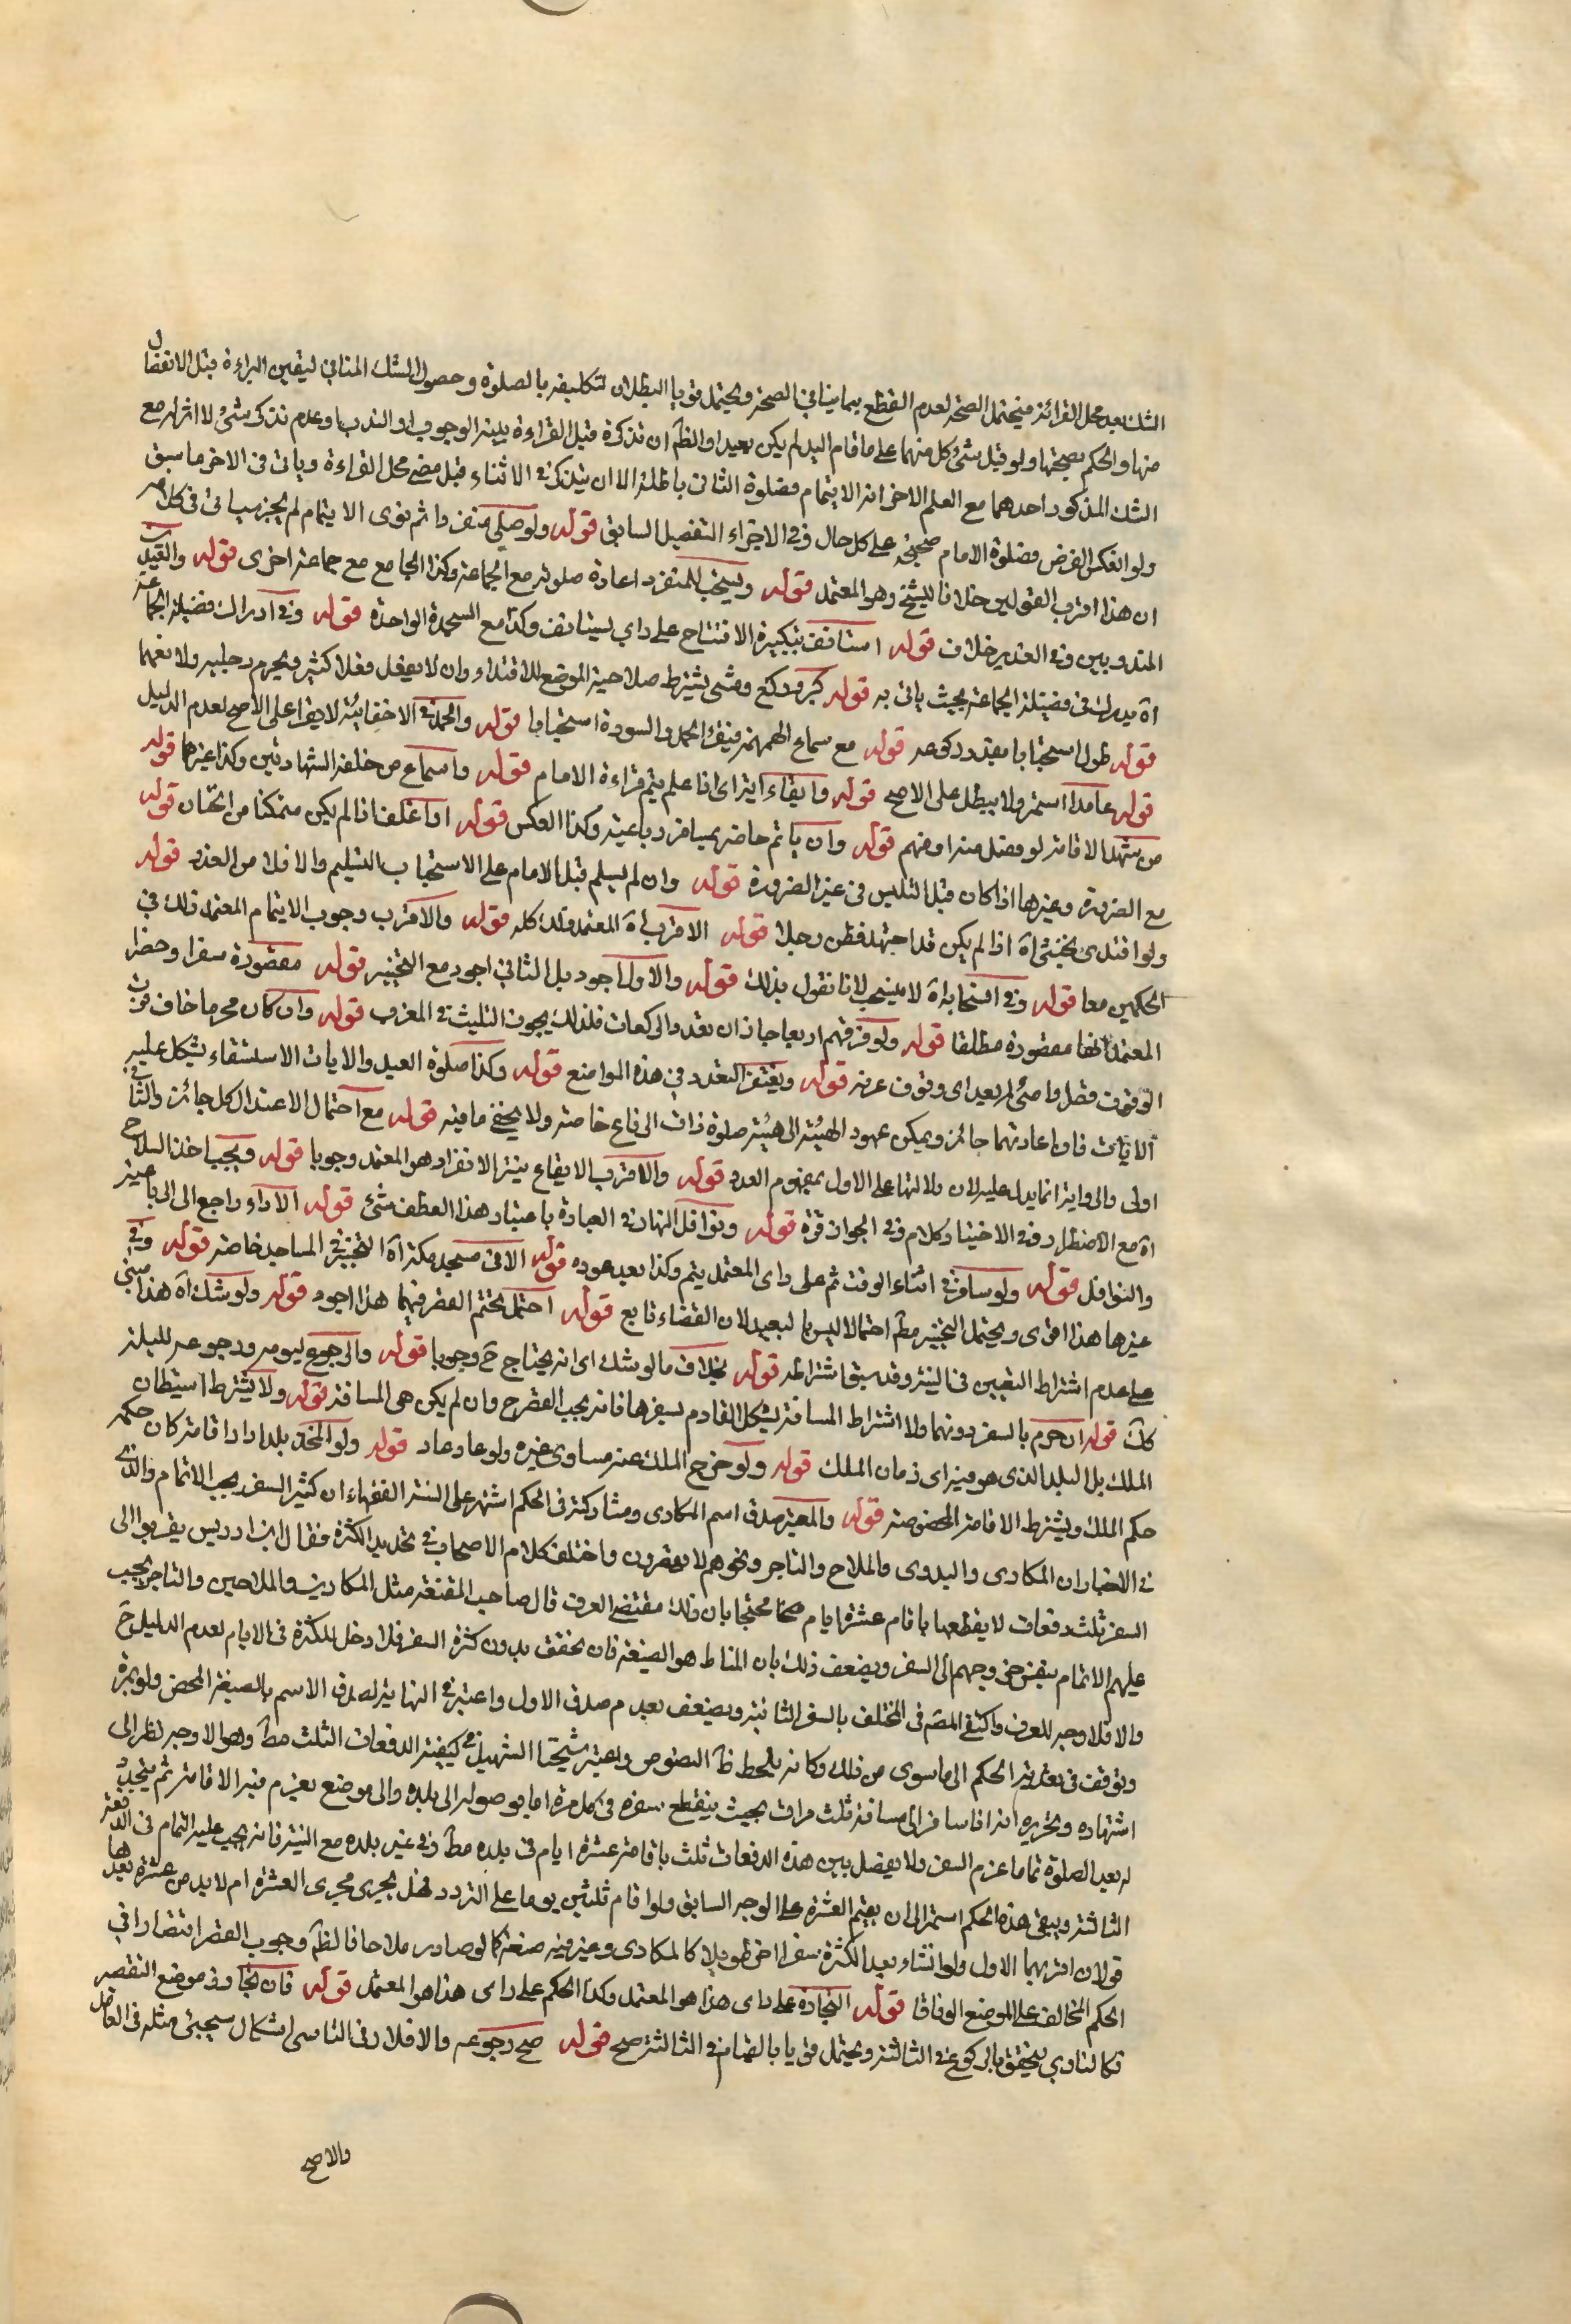 الشك بعد محل القرائة فيحتمل الصحة لعدم القطع بما ينافي الصحة ويحتمل قويا البطلان لتكليفه بالصلوة وحصول الشك المنافي ليقين البراءة قبل الانتقال
منها والحكم بصحتها ولو قيل بشئ كل منهما على ما قام اليه لم يكن بعيدا والظ ان تذكره قبل القراءة بنية الوجوب او الندب او عدم تذكر شئ لا اثر له مع
الشك المذكور احدهما مع العلم الاخر انه الايتمام فصلوة الثاني باطلة الا ان يتذكر في الاثناء قبل مضي محل القراءة وياتى فى الاخر ما سبق
ولو انعكس الفرض فصلوة الامام صحيحة على كل حال وفي الاجزاء التفصيل السابق قوله ولو صلى منفردا ثم نوى الايتمام لم يجز سياتى فى كلامه
ان هذا اقرب القولين خلافا للشيخ وهو المعتمد قوله ويستحب للمنفرد اعادة صلوته مع الجماعة وكذا الجامع مع جماعة اخرى قوله والقيد بين
المندوبين وفي الغدير خلاف قوله استانف بتكبيرة الافتتاح على راى يستانف وكذا مع السجدة الواحدة قوله وفي ادراك فضيلة الجماعة
اة يدرك فى فضيلة الجماعة بحيث ياتى به قوله كبر وركع ومشى يشترط صلاحية الموضع للاقتداء وان لا يفعل فعلا كثيرا ويجرم رجليه ولا يرفعهما
قوله طول استحبابا بمقدار ركوعه قوله مع سماع الهمهمة فيقرأ الحمد والسورة استحبابا قوله والحمد في الاخفاتية لا يقرأ على الاصح لعدم الدليل
قوله عامدا استمر ولا يبطل على الاصح قوله وابقاء اية اى اذا علم يتم قراءة الامام قوله واسماع من خلفه الشهادتين وكذا غيرها قوله
من شهد الاقامة لو فصل منه او منهم قوله وان ياتم حاضر بمسافر رباعية وكذا العكس قوله او اغلف اذا لم يكن متمكنا من الختان قوله
مع الضرورة وغيرها اذا كان قبل التلبس فى غير الضرورة قوله وان لم يسلم قبل الامام على الاستحباب التسليم والا فلا من العذر قوله
ولو اقتدى بخنثى اة اذا لم يكن قد اجتهد فظن رجلا قوله الاقرب اة المعتمد ذلك كله قوله والاقرب وجوب الايتمام المعتمد ذلك في
الحكمين معا قوله وفي استحبابه اة لا يستحب لانا نقول بذلك قوله والاول اجود بل الثاني اجود مع التخيير قوله مقصورة سفرا وحضرا
المعتمد انها مقصورة مطلقا قوله ولو فرقهم اربعا جاز ان تعدد الركعات فلذلك يجوز التثليث في المغرب قوله وان كان محرما خاف فوت
الوقوف فصل وامئ لم بعيد اى وقوف عرفة قوله ويغتفر التعدد في هذه المواضع قوله وكذا صلوة العيد والايات الاستسقاء يشكل عليه
الايات فان اعادتهما جائز ويمكن عهود الهيئة الى هيئة صلوة ذات الرقاع خاصة ولا يخفى ما فيه قوله مع احتمال الاعتدال كل جائز والثاني
اولى والرواية انما يدل عليه لان دلالتها على الاول بمفهوم العدد قوله والاقرب الايقاع بنية الانفراد وهو المعتمد وجوبا قوله ويجب اخذ السلاح
اة مع الاضطرار وفي الاختيار كلام وفي الجواز قوة قوله ونوافل النهار في العبادة باعتبار هذا العطف شئ قوله الاداء راجع الى الرباعية
والنوافل قوله ولو سافر في اثناء الوقت ثم على راى المعتمد يتم وكذا بعد عوده قوله الا فى مسجد مكة اة التخيير في المساجد خاصة قوله وفي
غيرها هذا اقوى ويحتمل التخيير مط احتمالا ليس بالبعيد لان القضاء تابع قوله احتمل تحتم القصر فيهما هذا اجود قوله ولو شك اة هذا مبنى
على عدم اشتراط التعيين فى النية وقد سبق اشتراطه قوله بخلاف ما لو شك اى انه يحتاج ح وجوبا قوله والرجوع ليومه ورجوعه لليلة
كك قوله ان حرم بالسفر دونهما ولا اشتراط المسافة يشكل القادم بسفرها فانه يجب القصر ح وان لم يكن هى المسافة قوله ولا يشترط استيطان
الملك بل البلد الذى هو فيه اى زمان الملك قوله ولو خرج الملك عنه مساوى غيره ولو عاد عاد قوله ولو اتخذ بلدا دار اقامة كان حكمه
حكم الملك ويشترط الاقامة المخصوصة قوله والمعتبر صدق اسم المكارى ومشاركته فى الحكم اشتهر على السنة الفقهاء ان كثير السفر يجب الاتمام والذى
في الاخبار ان المكارى والبدوى والملاح والتاجر ونحوهم لا يقصرون واختلف كلام الاصحاب في تحديد الكثرة فقال ابن ادريس يقربوا الى
السفر ثلث دفعات لا يقطعها باقام عشرة ايام محتجا بان ذلك مقتضى العرف قال صاحب المقنعة مثل المكارين والملاحين والتاجر يجب
عليهم الاتمام بنفس خروجهم الى السفر ويضعف ذلك بان المناط هو الصيغة فان تحقق بدون كثرة السفر فلا دخل للكثرة فى الايام لعدم الدليل ح
والا فلا وجه للعرف واكتفى المصنف فى المختلف بالسفر الثانية ويضعف بعدم صدق الاول واعتبر في النهاية صدق الاسم بالصيغة المحض ولو بمرة
وتوقف فى تعدية الحكم الى ما سوى من ذلك وكانه يلحظ ظ النصوص واعتبر شيخنا الشهيد في كيفية الدفعات الثلث مط وهو الاوجه نظرا الى
اشتهاره وتحريره انه اذا سافر الى مسافة ثلث مرات بحيث ينقطع سفره فى كل مرة اما بوصوله الى بلده والى موضع يعزم فيه الاقامة ثم يتجدد
له بعد الصلوة تماما عزم السفر ولا يفصل بين هذه الدفعات ثلث باقامة عشرة ايام فى بلده مط وفي غير بلده مع النية فانه يجب عليه التمام فى الدفعة
الثالثة ويبقى هذه الحكم استمر الى ان يقيم العشرة على الوجه السابق ولو اقام ثلثين يوما على التردد فهل يجرى مجرى العشرة ام لا بد من عشرة بعدها
قولان اقربهما الاول ولو انشاء بعد الكثرة سفرا اخر طويلا كالمكارى وغير فيه صنعة كما لو صار ملاحا فالظ وجوب القصر اقتصارا فى
الحكم المخالف على الموضع الوفاقا قوله التجارة على راى هذا هو المعتمد وكذا الحكم على راى هذا هو المعتمد قوله فان لجا وفى موضع التقصير
فكالناوي يتحقق بالركوع في الثالثة ويحتمل قويا بالقيام في الثالثة صح قوله صح رجوعه والا فلا وفى الناسى اشكال سيجئ مثله فى الغافل
والاصح